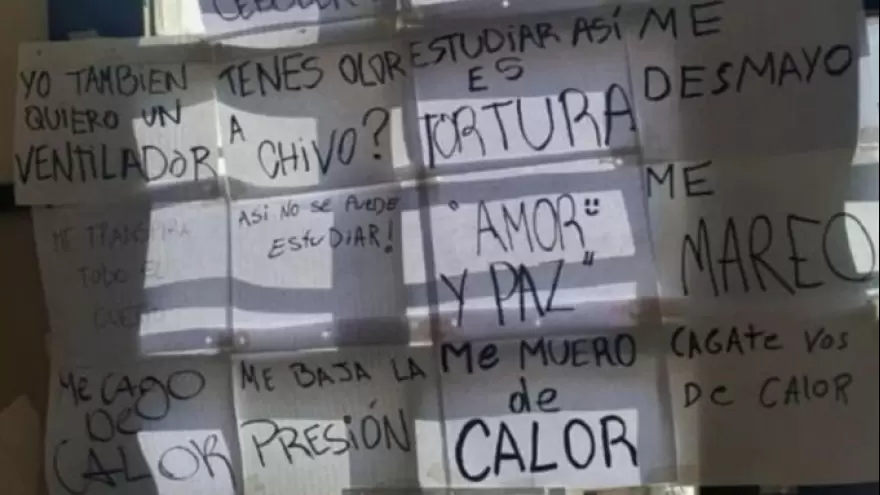 YO TAMBIEN
QUIERO UN
VENTILADOR
TENES OLOR
A
CHIVO?
ESTUDIAR ASÍ
ES
TORTURA
ME
DESMAYO
ME TRANSPIRA
TODO EL
ASI NO SE PUEDE
ESTUDIAR!
"AMOR
Y PAZ"
ME
MAREO
ME CAGO
DE
CALOR
ME BAJA LA
PRESIÓN
Me MUERO
de
CALOR
CAGATE VOS
DE CALOR